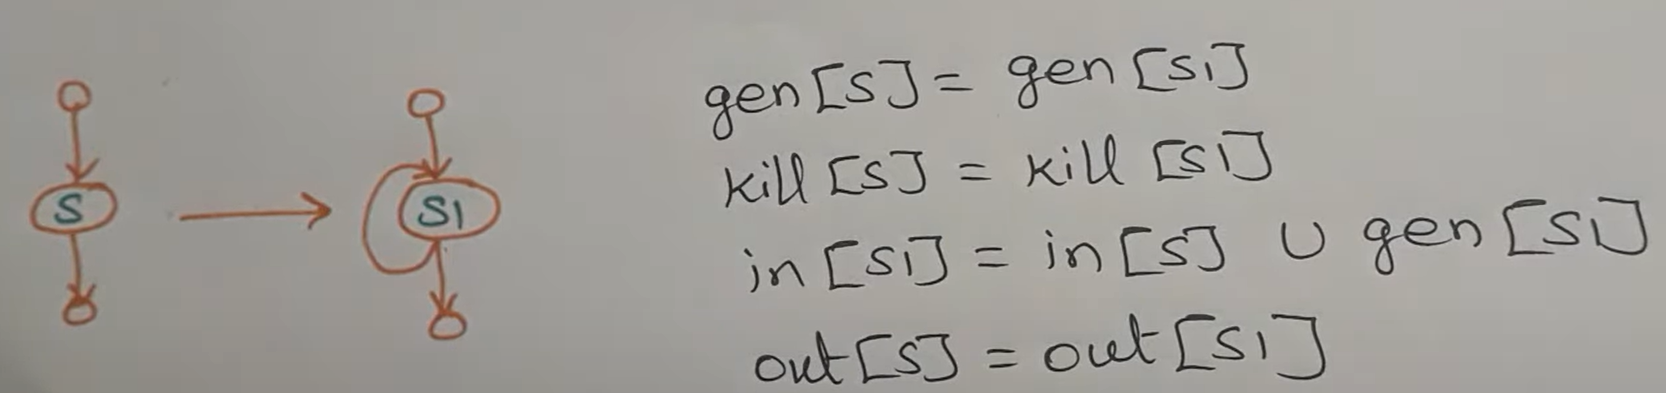 S
S1
gen [S] = gen [S1]
kill [S] = kill [S1]
in [S1] = in [S] ∪ gen [S1]
out [S] = out [S1]